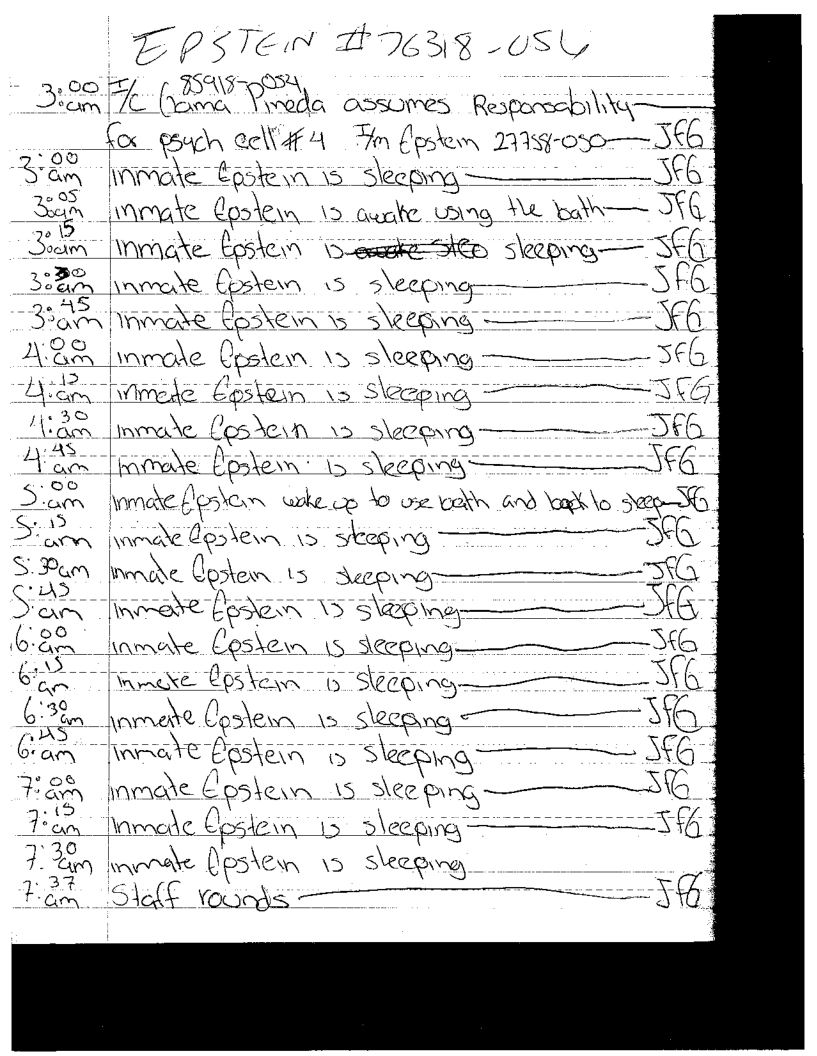 EPSTEIN # 76318-054
3:00 am I/C 85918-054 Gama Pineda assumes Responsability
for psych cell #4 I/m Epstein 27758-050 JFG
3:00 am inmate Epstein is sleeping JFG
3:05 am inmate Epstein is awake using the bath JFG
3:15 am inmate Epstein is sleeping JFG
3:30 am inmate Epstein is sleeping JFG
3:45 am inmate Epstein is sleeping JFG
4:00 am inmate Epstein is sleeping JFG
4:15 am inmate Epstein is sleeping JFG
4:30 am inmate Epstein is sleeping JFG
4:45 am inmate Epstein is sleeping JFG
5:00 am inmate Epstein wake up to use bath and back to sleep JFG
5:15 am inmate Epstein is sleeping JFG
5:30 am inmate Epstein is sleeping JFG
5:45 am inmate Epstein is sleeping JFG
6:00 am inmate Epstein is sleeping JFG
6:15 am inmate Epstein is sleeping JFG
6:30 am inmate Epstein is sleeping JFG
6:45 am inmate Epstein is sleeping JFG
7:00 am inmate Epstein is sleeping JFG
7:15 am inmate Epstein is sleeping JFG
7:30 am inmate Epstein is sleeping
7:37 am Staff rounds JFG